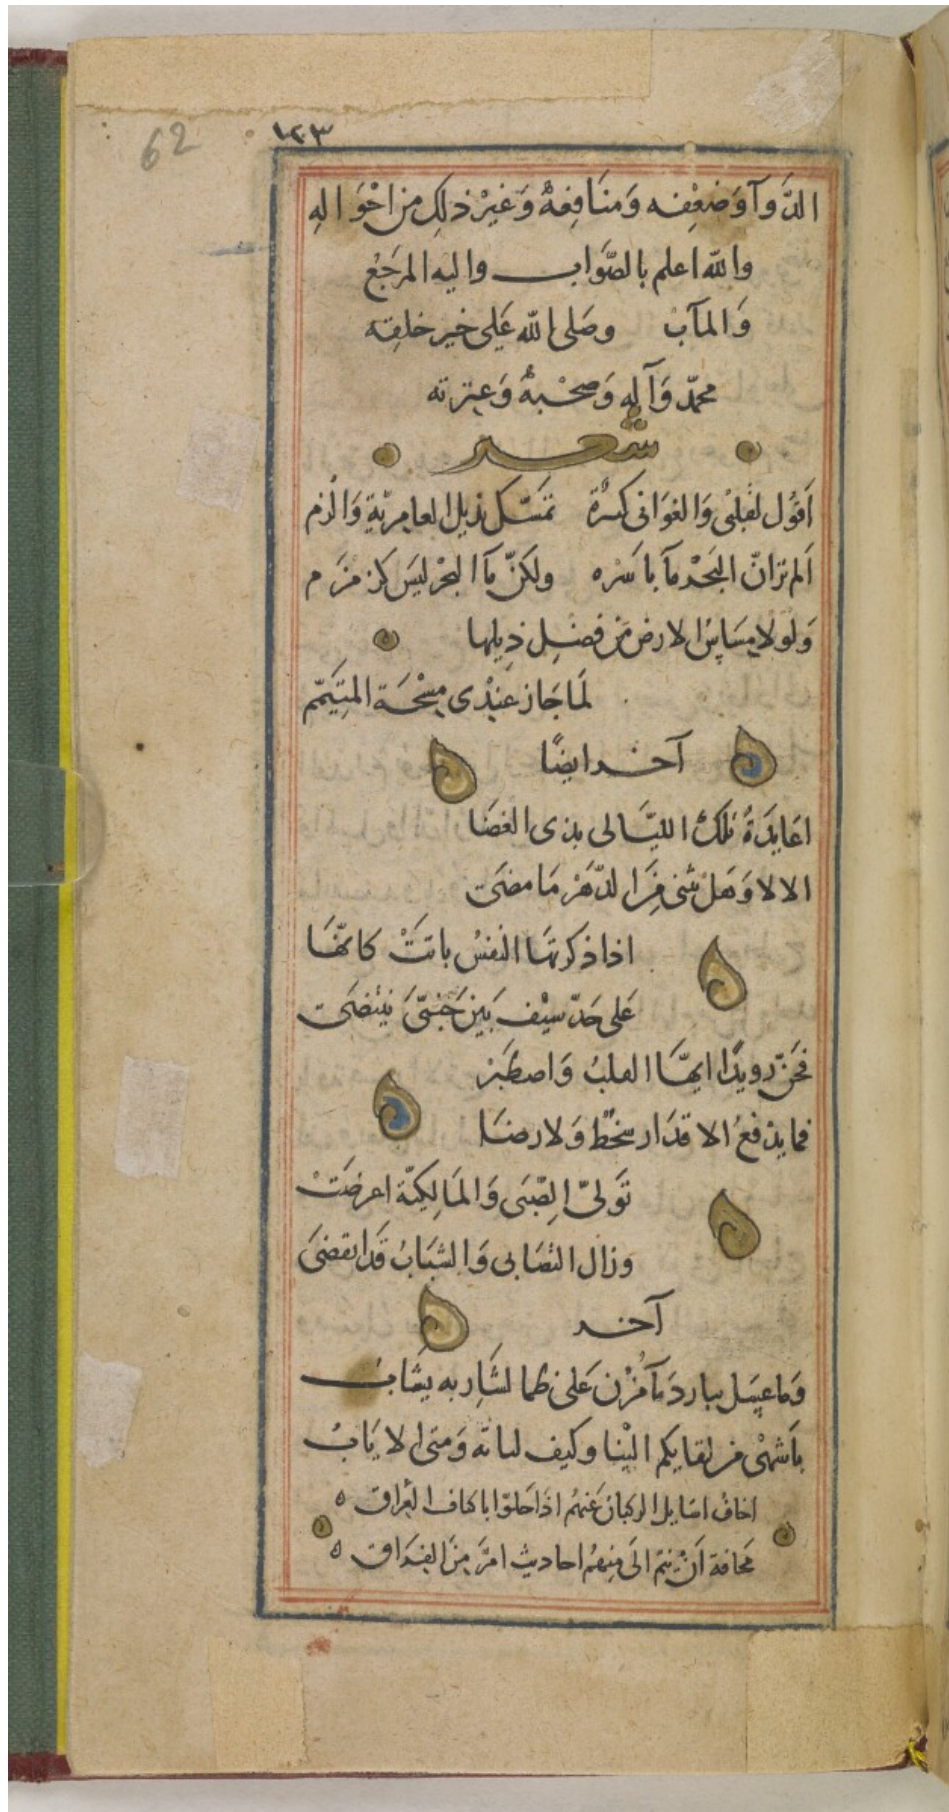 62
١٢٣
الدَّوآ وَضعْفِه وَمنَافِعِهُ وَغَيْر ذلِك من احْوَالِهِ
والله اعلم بالصَّوَاب واليه المرجَعُ
وَالمآبُ وصَلى الله عَلى خير خلقِه
محمّد وَآلِهِ وَصحْبِهُ وَعِترته
شعر
اَقوُل لقلبْى وَالغوَانى كثيرة تمَسّك بذيل العامريّةِ وَالْزم
اَلم تر انّ البَحْر مآ باَسْره ولكنّ مَآ البحْر ليَس كزمزم
وَلوْ لا مِسَاسُ الارض مَن فضِل ذيلها
لمَا جَاز عنِدْى مِسْحَة المتِيَمّم
آخر ايضًا
اعَايدَةٌ تلكَ الليَّالى بذى الغضَا
الا لا وَهَلْ شىْ مِنَ الدّهْر مَا مضىَ
اذا ذكرتهَا النفسُ باتَتْ كانّهَا
عَلى حَدّ سيْف بَين جَنبىَّ ينتضىَ
رويدًا ايهّا القلبُ وَاصطَبر
فما يدفعُ الاقدَار سخط وَلا رضَا
تَولىّ الصِّبَى وَالمَالِكيّة اعرضَتْ
وزال التصَابى وَالشَبَابُ قدَ انقضىَ
آخر
وَما عسَل ببارد مَآ مُزْن عَلى ظما لشَاربه يشَابُ
باَشهْى من لقايكم اليْنا وكيف لنا به وَمتى الايَابُ
اخافُ اسَايل الركبان عَنهُم اذَا حَلوّا باكناف العِراق
مخافة اَنْ ينمّ الىَ مِنهُم احاديث امَرّ مِنَ الفِرَاق